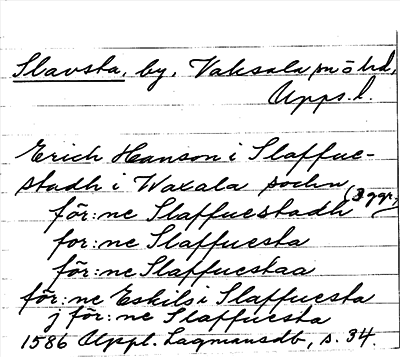 Slavsta, by, Vaksala sn o hd,
Upps. l.
Erich Hanson i Slaffue-
stadh i Waxala sochn
för:ne Slaffuestadh (3 ggr)
for:ne Slaffuesta
för:ne Slaffuestaa
för:ne Eskils i Slaffuesta
j för:ne Slaffuesta
1586 Uppl. Lagmansdb, s. 34.